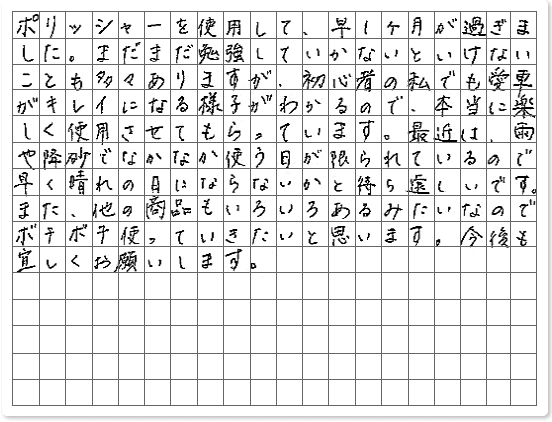 ポリッシャーを使用して、早1ケ月が過ぎま
した。まだまだ勉強していかないといけない
ことも多々ありますが、初心者の私でも愛車
がキレイになる様子がわかるので、本当に楽
しく使用させてもらっています。最近は、雨
や降砂でなかなか使う日が限られているので
早く晴れの日にならないかと待ち遠しいです。
また、他の商品もいろいろあるみたいなので
ボチボチ使っていきたいと思います。今後も
宜しくお願いします。